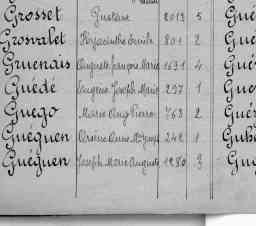 Grosset Gustave 2013 5 Gué
Grosvalet Hyacinthe Emile 801 2 Gue
Gruenais Auguste François Marie 1631 4 Gué
Guédé Eugène Joseph Marie 237 1 Gue
Guégo Marie Ange Pierre 763 2 Gué
Guéguen 242 1 Gué
Guéguen Joseph Marie Auguste 1280 3